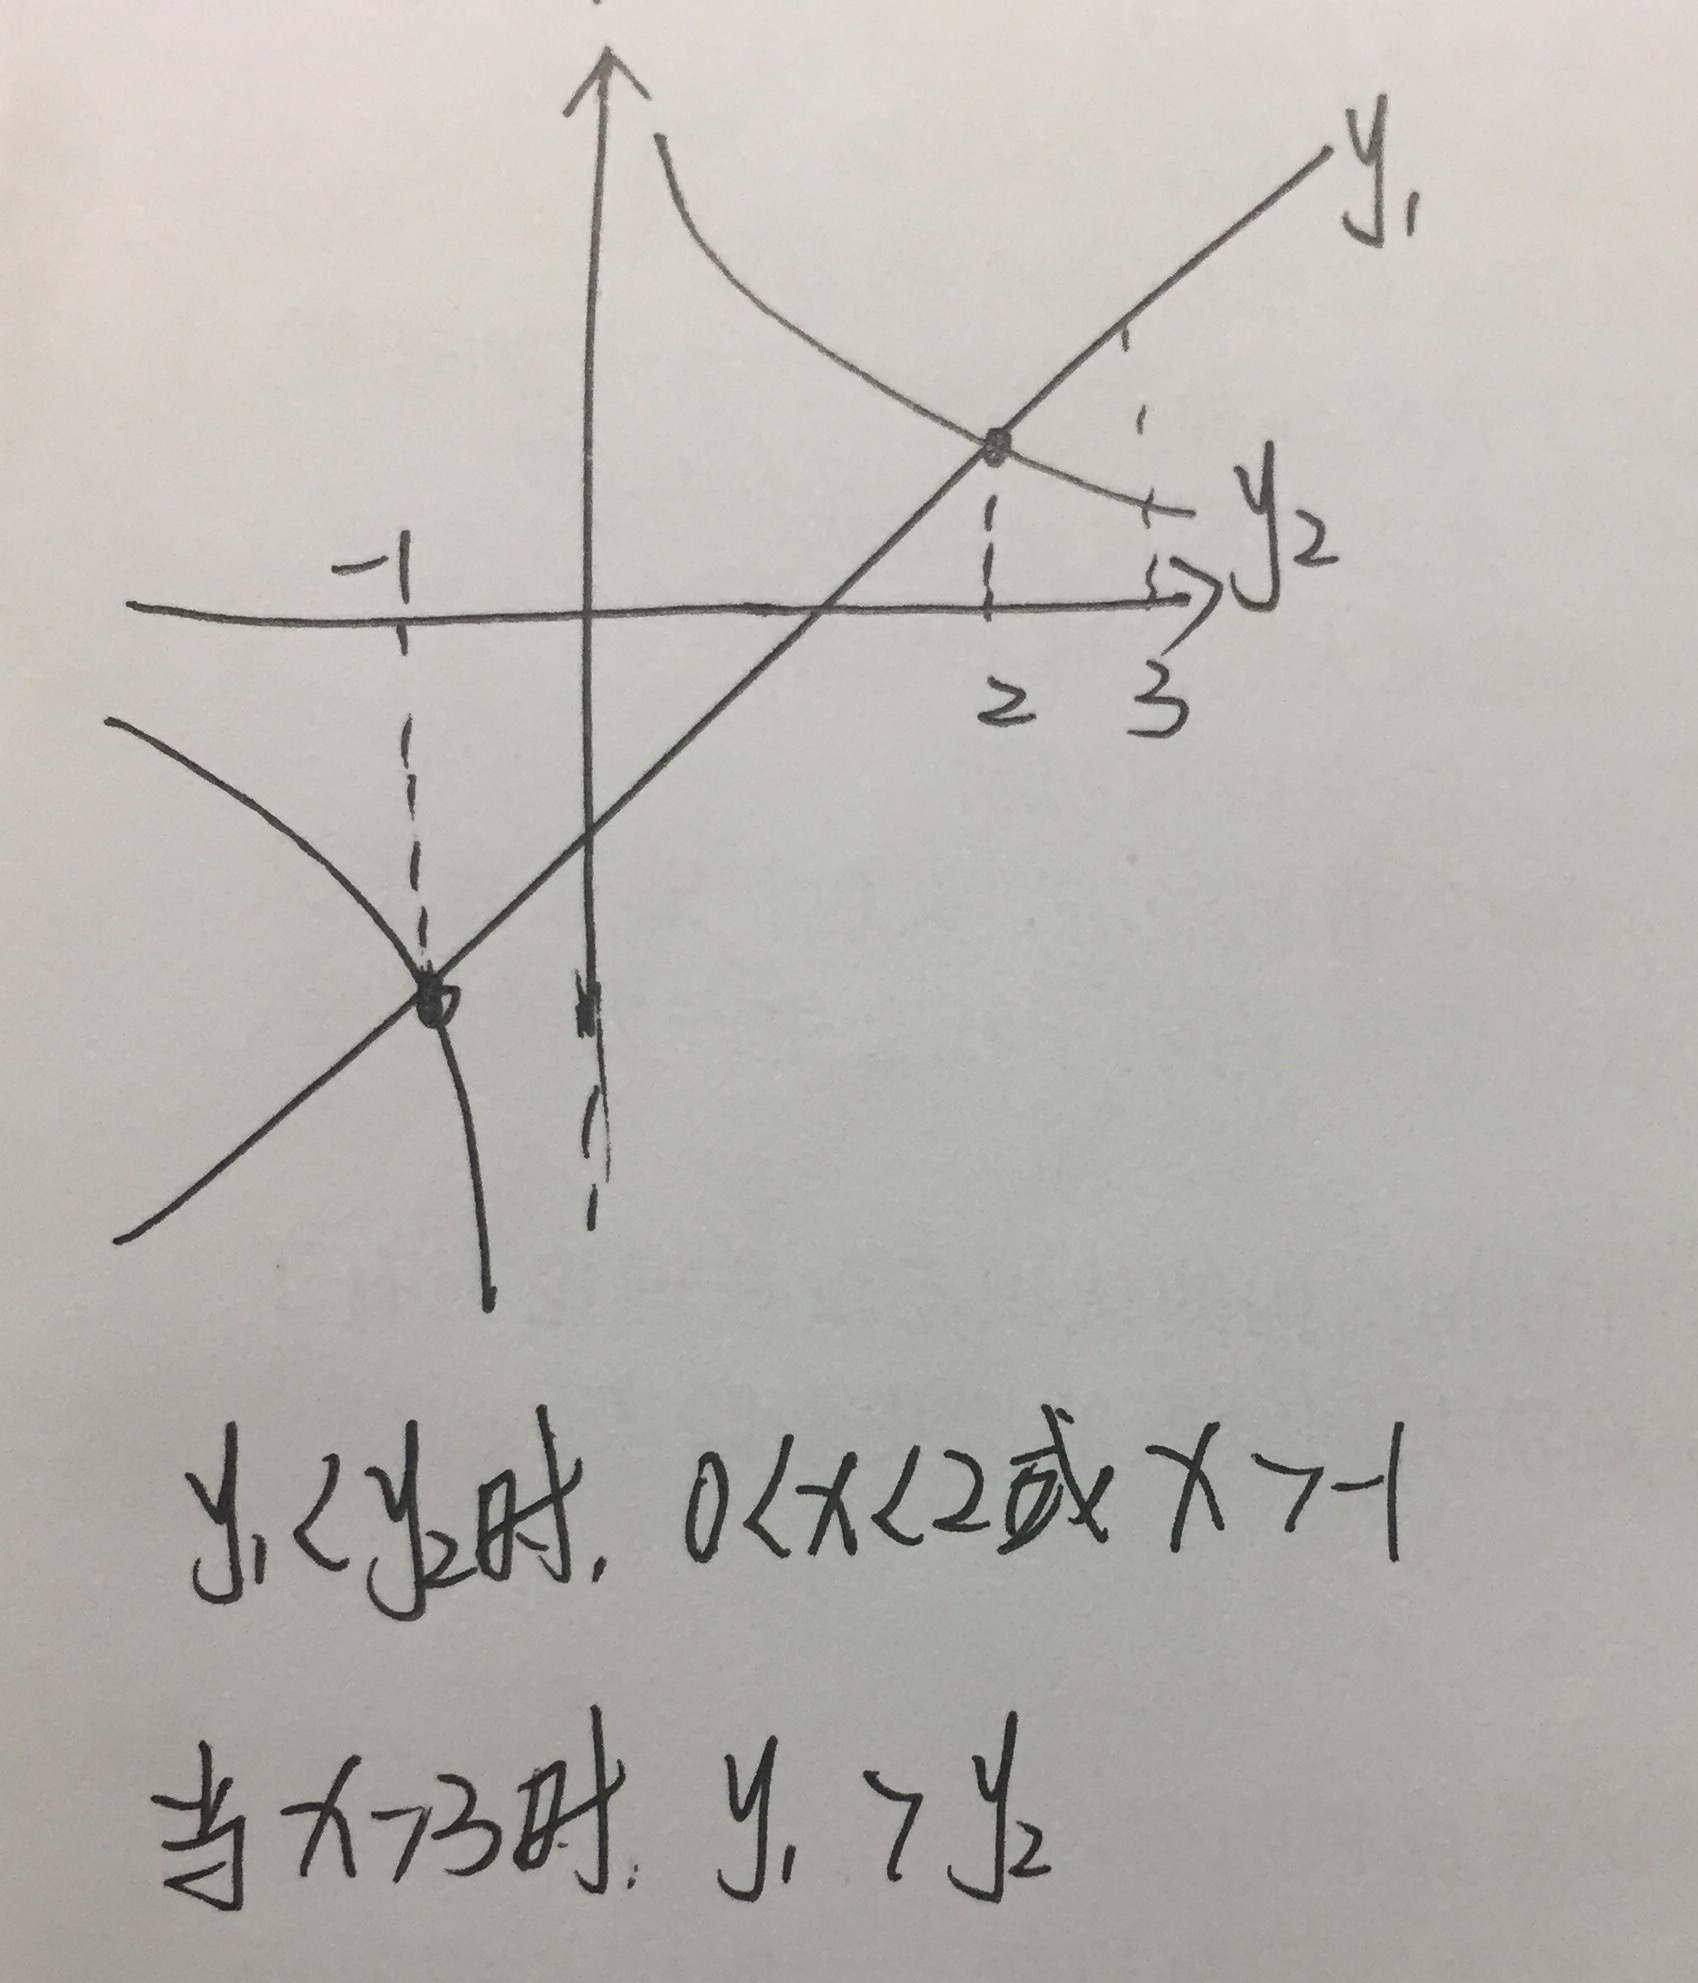 y₁
y₂
-1
2
3
y₁<y₂时, 0<x<2或x>-1
当x>3时, y₁>y₂